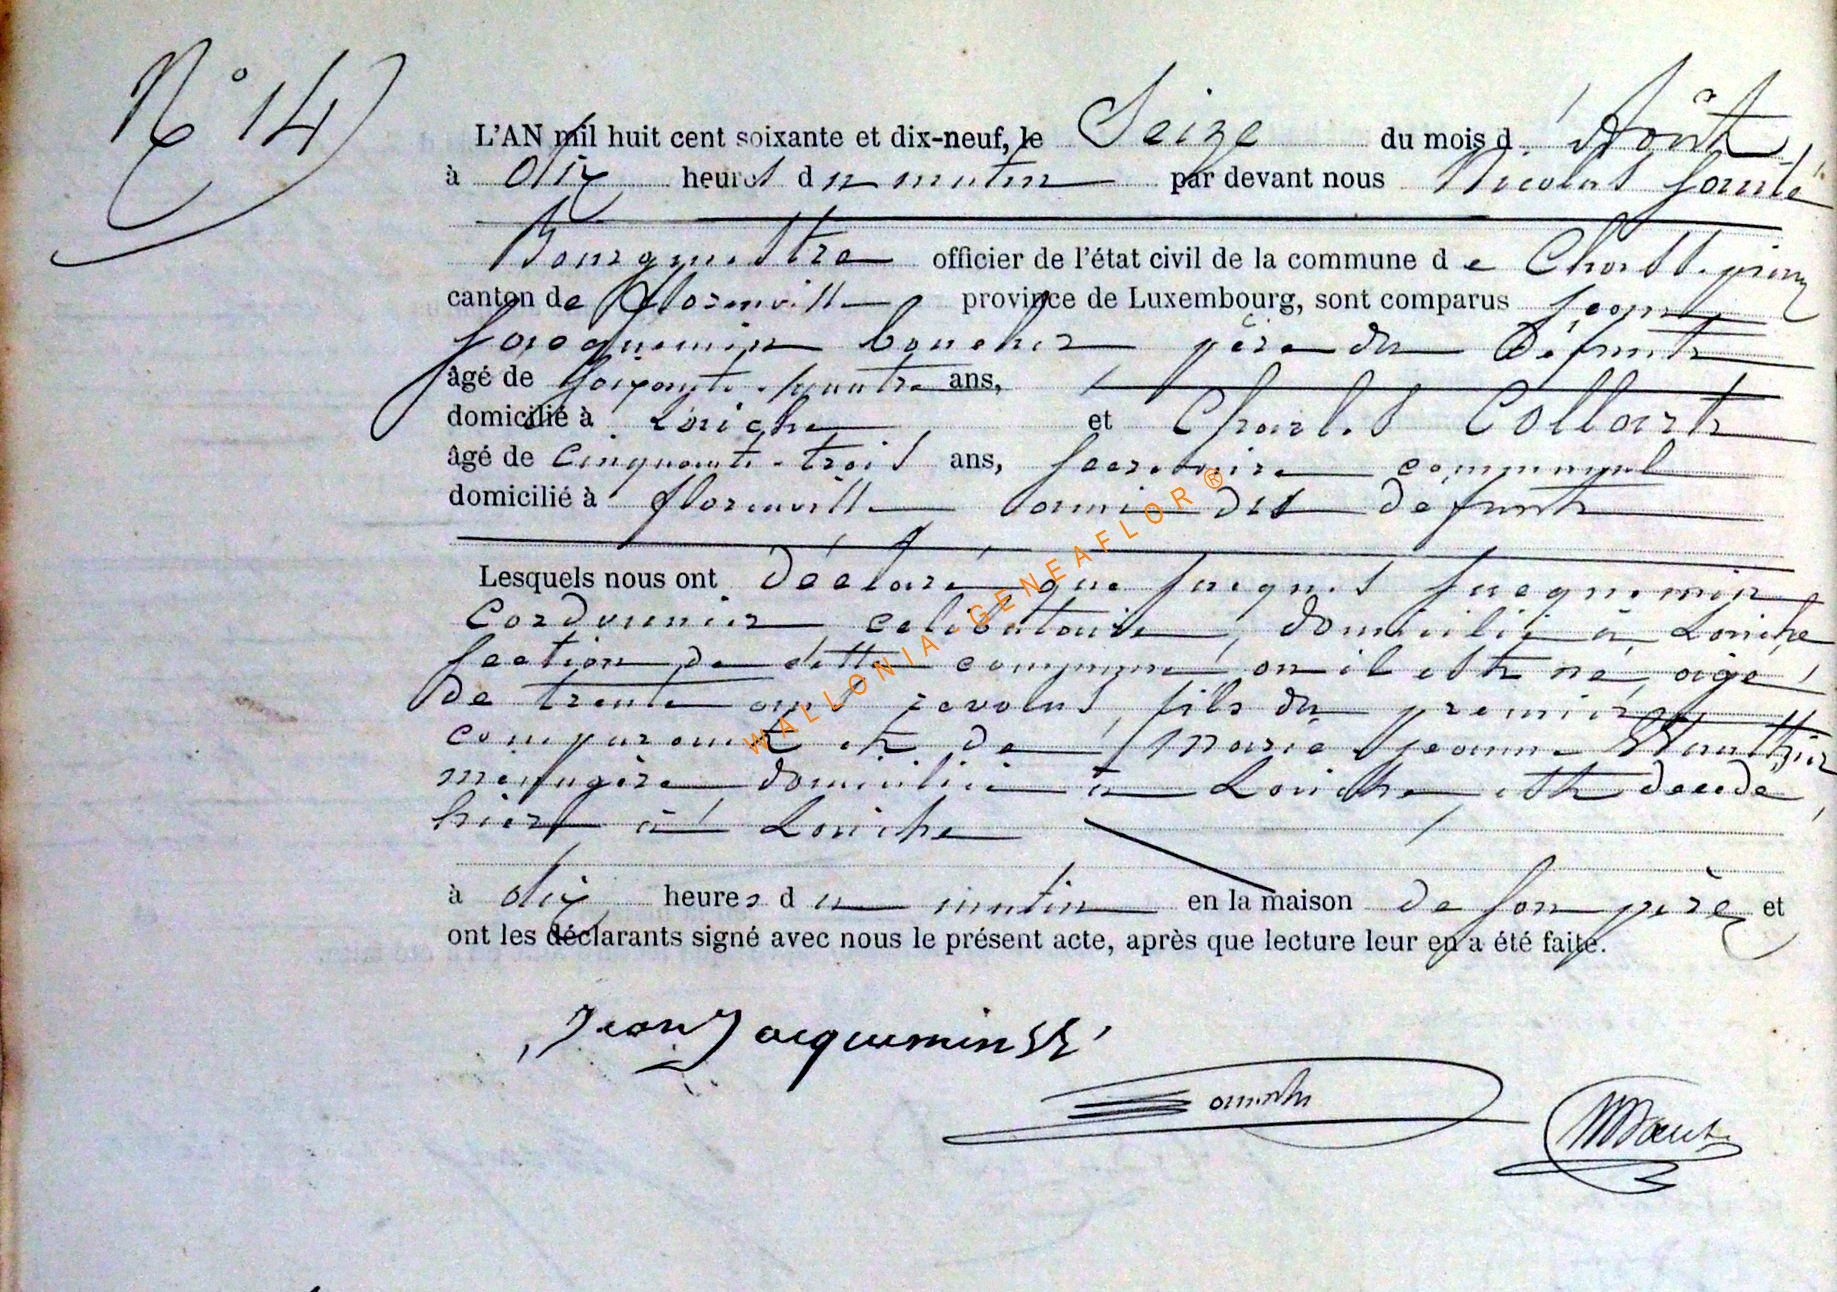 N° 14
L'AN mil huit cent soixante et dix-neuf, le Seize du mois d'Août
à dix heures du matin par devant nous Nicolas
Bourgmestre officier de l'état civil de la commune de Chassepierre
canton de Florenville province de Luxembourg, sont comparus Jean
Jacquemin boucher père du défunt
âgé de soixante-quatre ans,
domicilié à Laiche et Charles Collart
âgé de cinquante-trois ans, secrétaire communal
domicilié à florenville ami du défunt
Lesquels nous ont déclaré que Jacques Jacquemin
Cordonnier celibataire, domicilié à Laiche
section de dette commune, où il est né, âgé
de trente ans révolus, fils du premier
comparant et de Marie Jeanne
ménagère domiciliée à Laiche, est décédé
hier à Laiche
à dix heures du matin en la maison de son père et
ont les déclarants signé avec nous le présent acte, après que lecture leur en a été faite.
Jean Jacquemin
WALLONIA-GENEAFLOR®